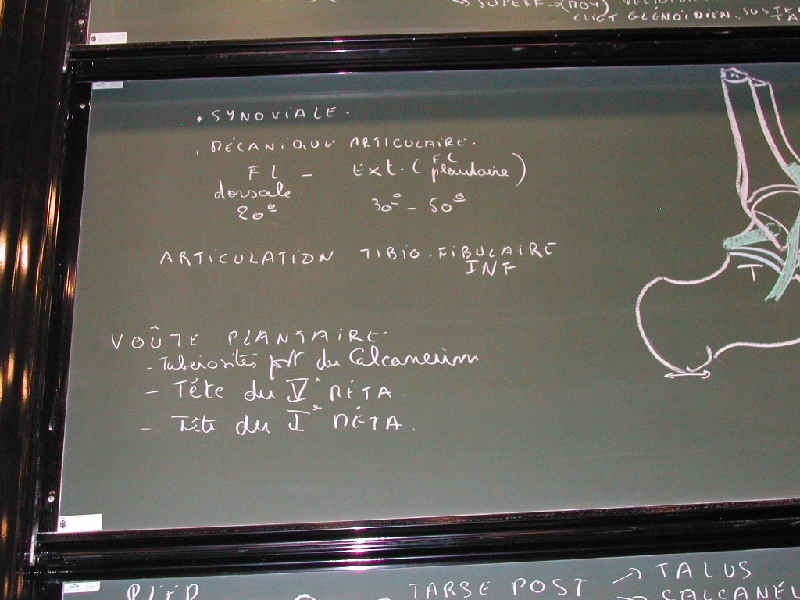 SUPERF
CLIOT GLENOÏDIEN. SUSTE
TA
. SYNOVIALE.
. MÉCANIQUE ARTICULAIRE.
FL - Ext. (FL plantaire)
dorsale
20° 30° - 50°
ARTICULATION TIBIO.FIBULAIRE
INF
T
VOÛTE PLANTAIRE.
- Tuberosités pst du Calcaneum
- Tête du Ve MÉTA
- Tête du Ie MÉTA.
PIED TARSE POST → TALUS
CALCANEU